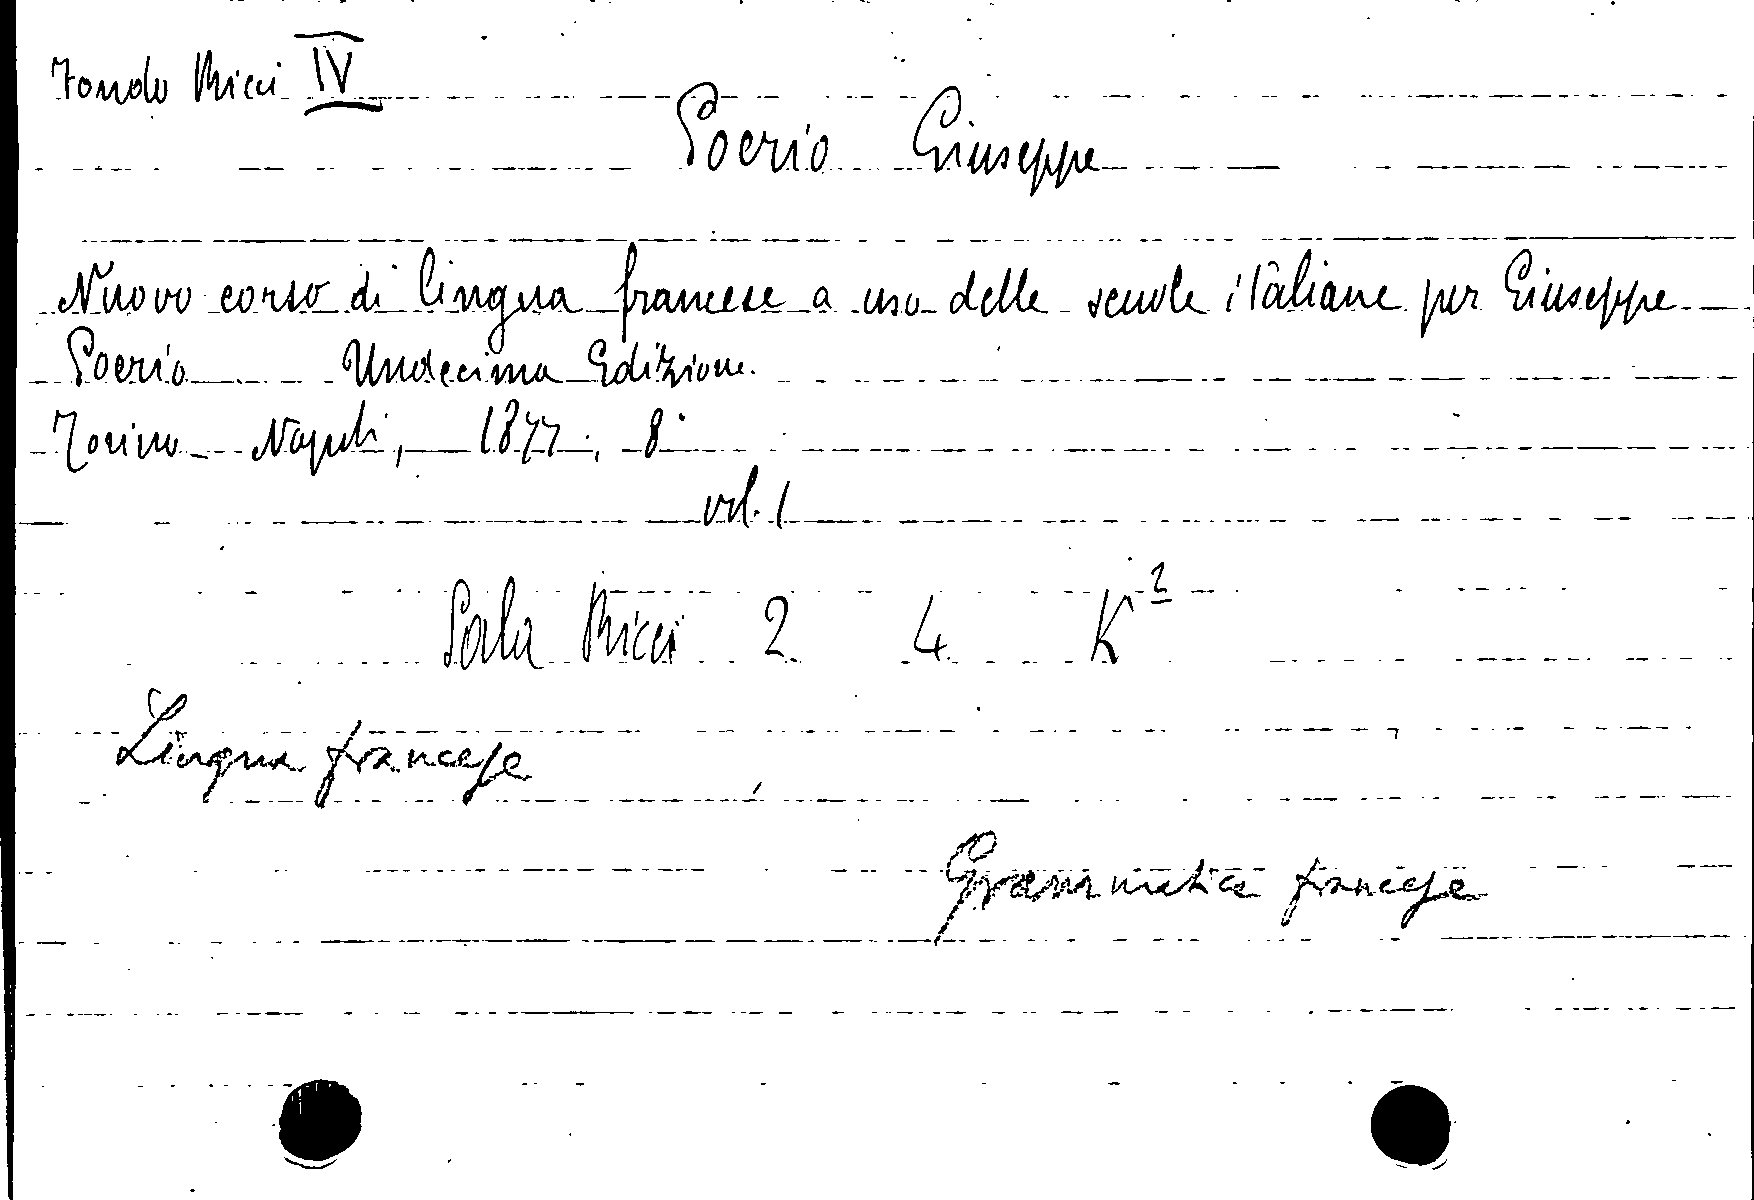 Fondo Ricci IV
Poerio Giuseppe
Nuovo corso di lingua francese a uso delle scuole italiane per Giuseppe
Poerio Undecima Edizione.
Torino - Napoli, 1877; 8°
vol. 1
Sala Ricci 2 4 K²
Lingua francese
Grammatica francese